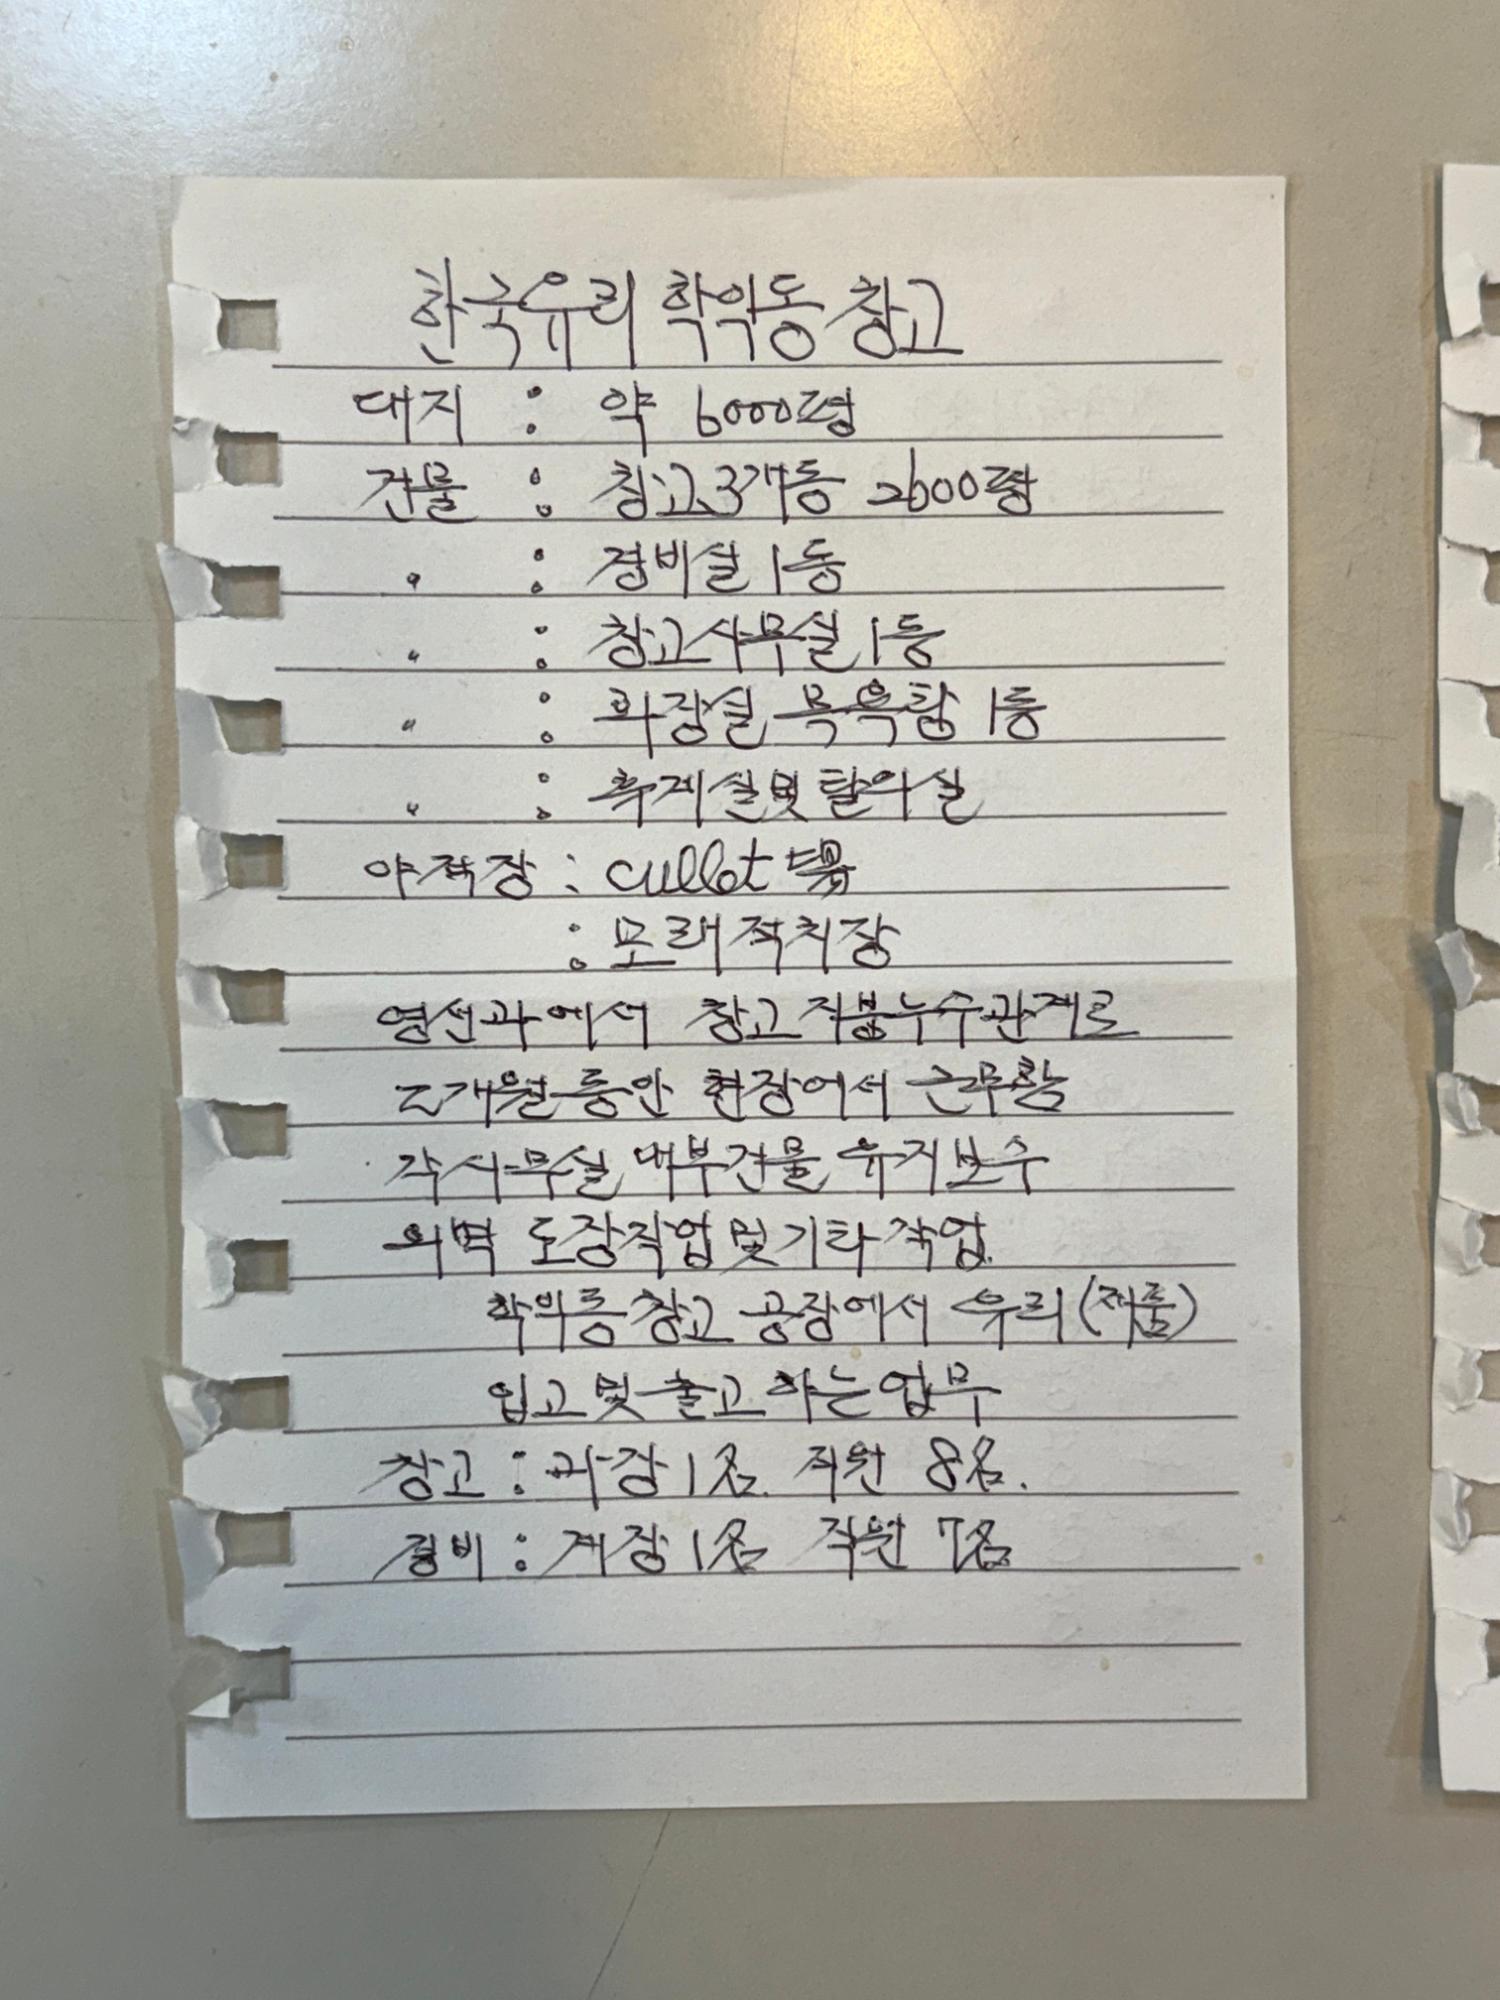 한국유리 학익동 창고
대지 : 약 6000평
건물 : 창고3개동 2600평
〃 : 경비실 1동
〃 : 창고사무실 1동
〃 : 화장실 목욕탕 1동
〃 : 휴게실및 탈의실
야적장 : cullet 場
: 모래적치장
영선과에서 창고지붕누수관계로
2개월동안 현장에서 근무함
각사무실 내부건물 유지보수
외벽 도장작업및기타작업.
학익동창고 공장에서 유리(제품)
입고및출고 하는업무
창고 : 과장1名. 직원 8名.
경비 : 계장1名 직원 7名